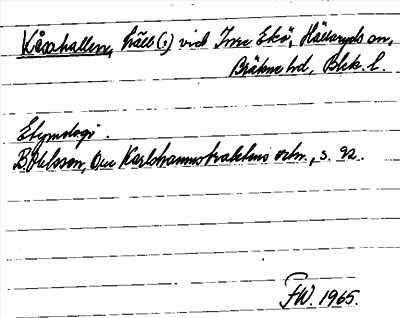 Kåsahallen, häll (:) vid Inre Ekö, Hällaryds sn,
Bräkne hd, Blek. l.
Etymologi.
B. Ohlsson, Om Karlshamnstraktens ortn., s. 92.
FW. 1965.